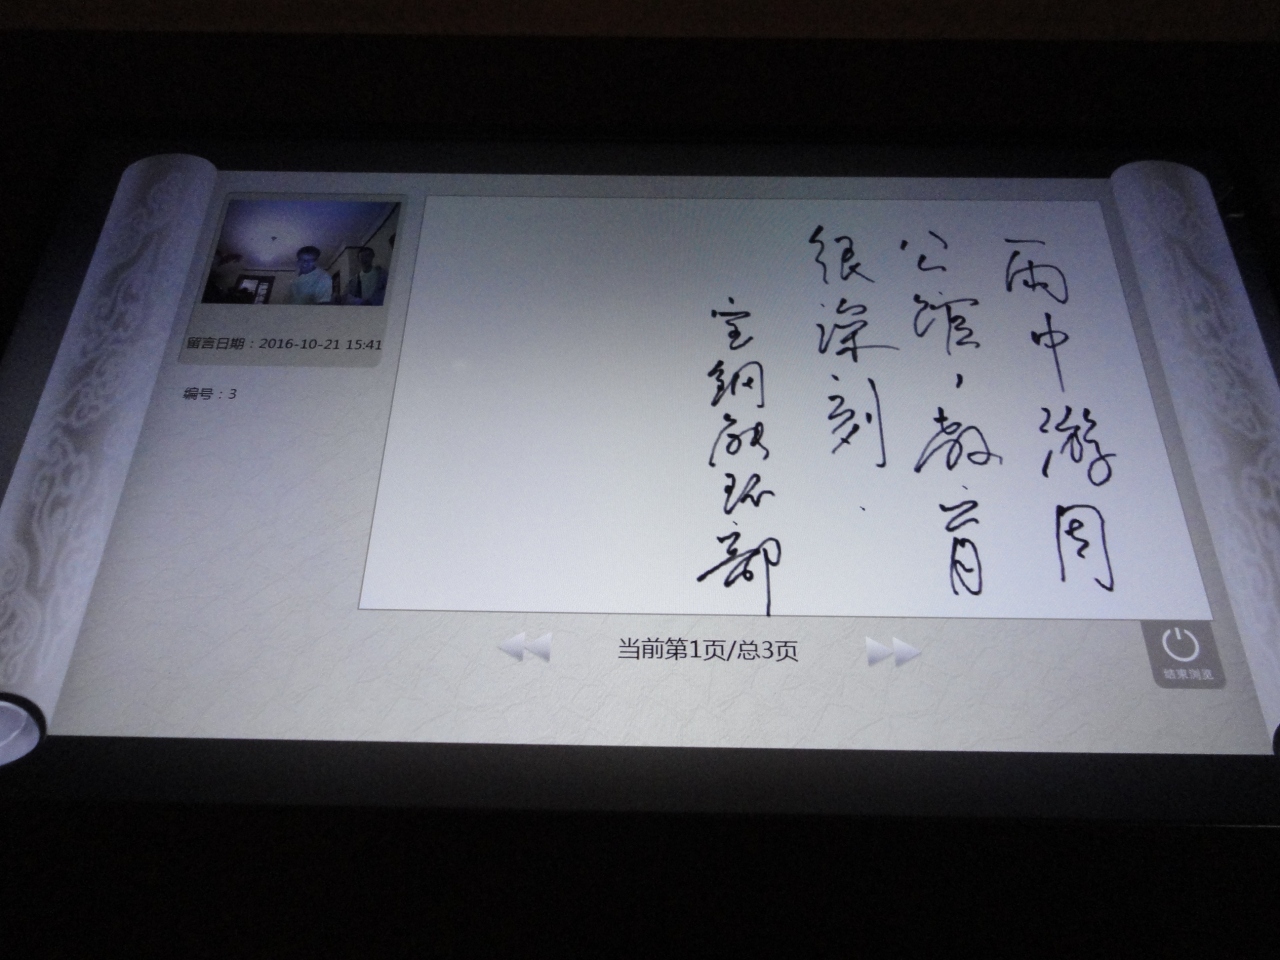 雨中游周
公馆，教育
很深刻.
宝钢能环部
留言日期：2016-10-21 15:41
编号：3
当前第1页/总3页
结束浏览